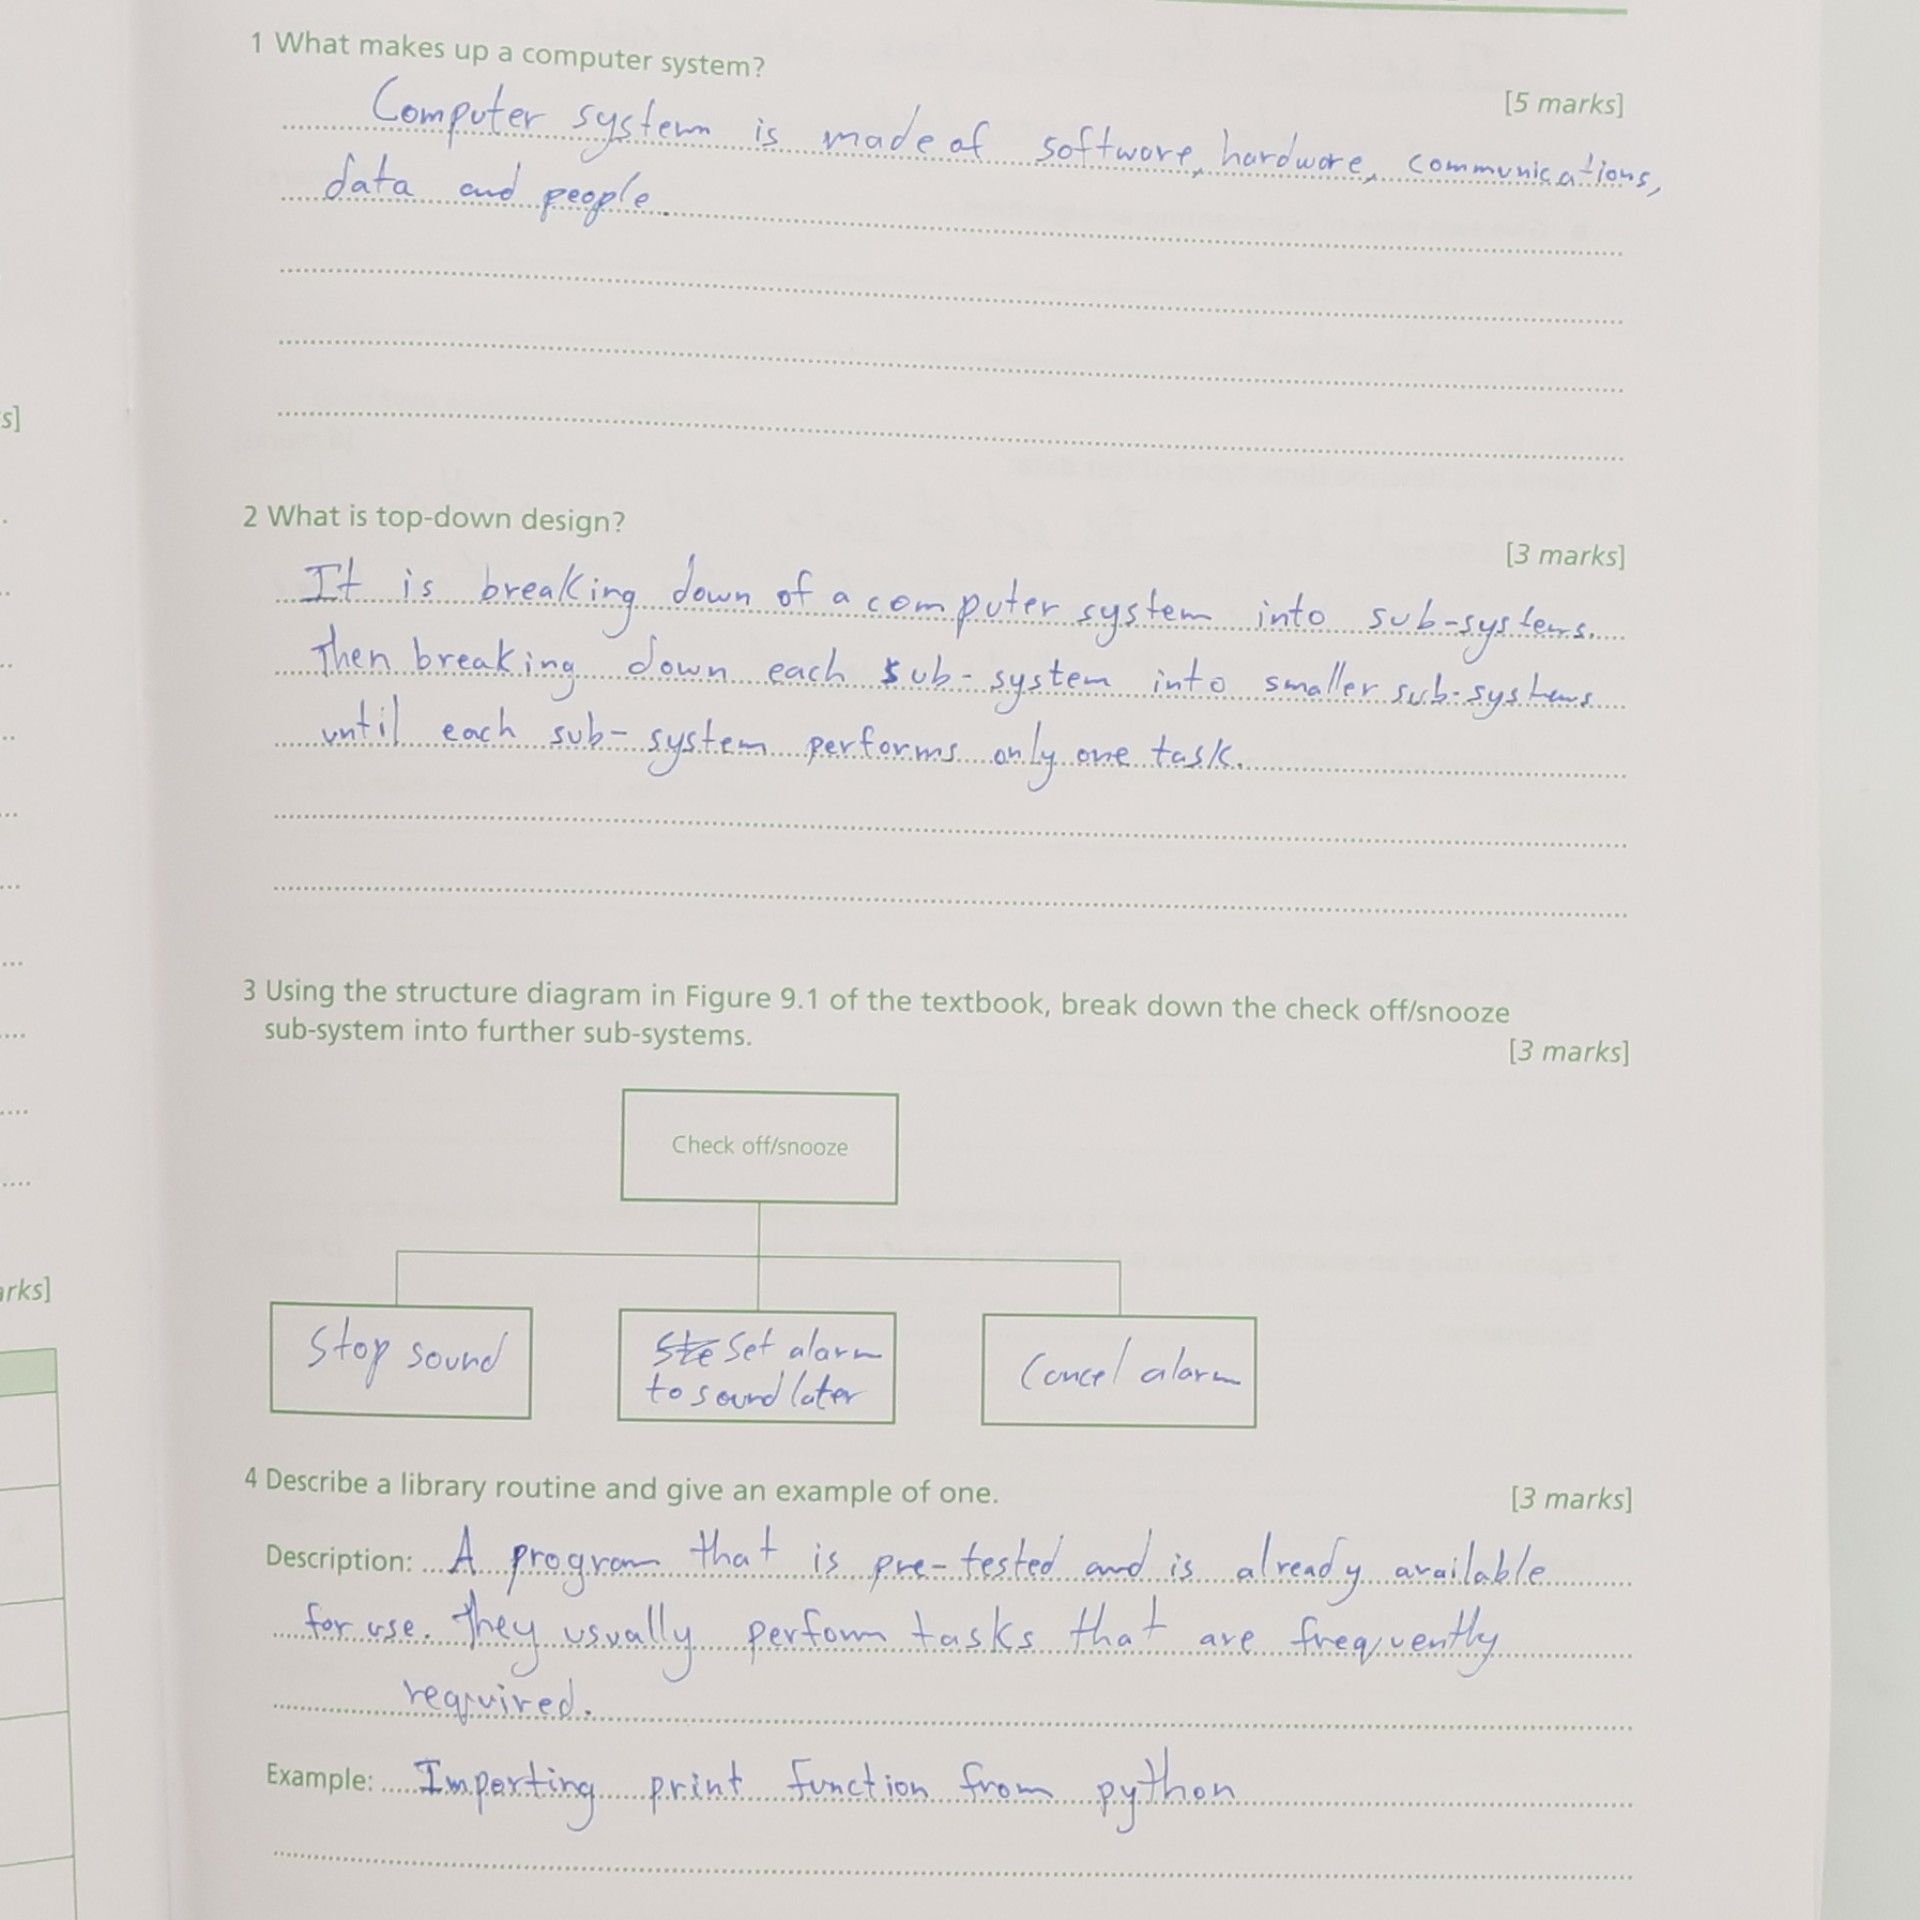 1 What makes up a computer system?
[5 marks]
Computer system is made of software, hardware, communications,
data and people.
s]
2 What is top-down design?
[3 marks]
It is breaking down of a computer system into sub-systems.
Then breaking down each sub-system into smaller sub-systems
until each sub-system performs only one task.
3 Using the structure diagram in Figure 9.1 of the textbook, break down the check off/snooze
sub-system into further sub-systems.
[3 marks]
Check off/snooze
arks]
Stop sound
Set alarm
to sound later
Cancel alarm
4 Describe a library routine and give an example of one.
[3 marks]
Description: A program that is pre-tested and is already available
for use. They usually perform tasks that are frequently
required.
Example: Importing print function from python